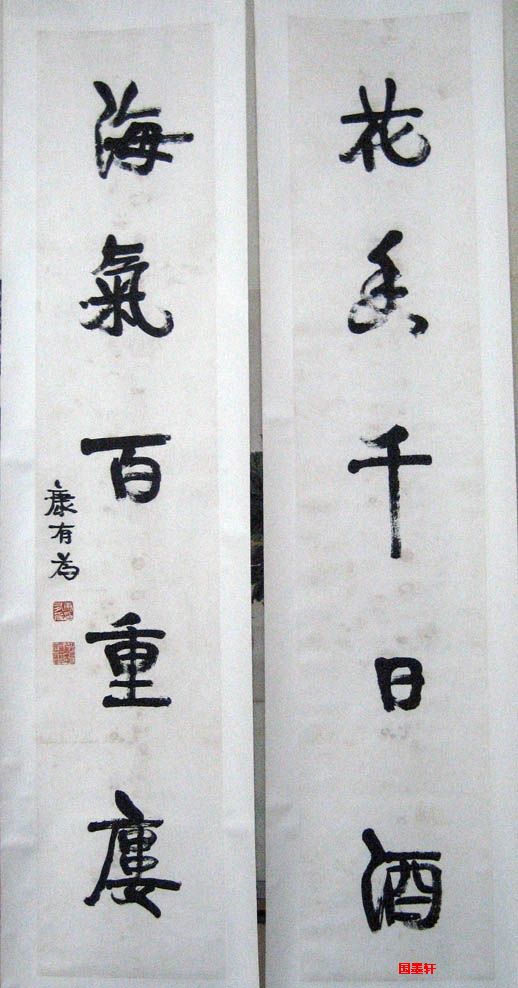 花香千日酒
海氣百重廔
康有為
国墨轩